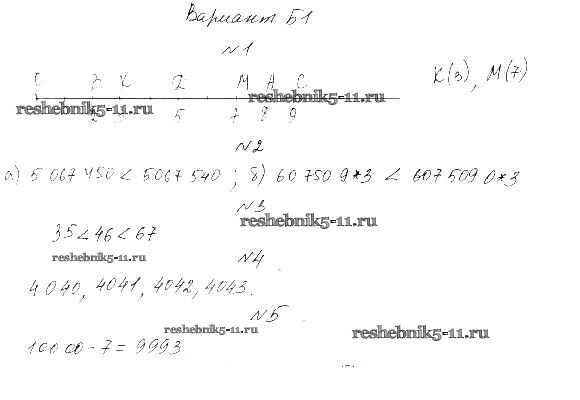 Вариант Б1
№1
В К М А С К(3), М(7)
reshebnik5-11.ru reshebnik5-11.ru
5 7 8 9
№2
а) 5 067 450 < 5 067 540 ; б) 60 750 9*3 < 607 509 0*3
№3
reshebnik5-11.ru
35 < 46 < 67
reshebnik5-11.ru
№4
4040, 4041, 4042, 4043.
№5
reshebnik5-11.ru reshebnik5-11.ru
10000 - 7 = 9993